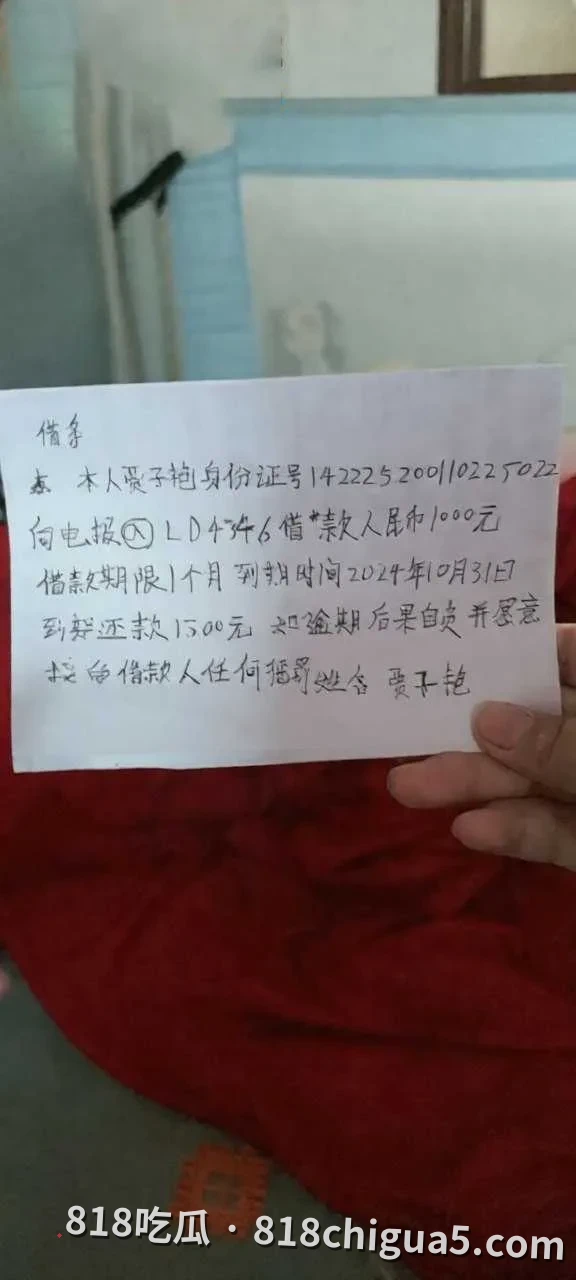 借条
本人贾子艳身份证号142225200110225022
向电报@LD4346借款人民币1000元
借款期限1个月到期时间2024年10月31日
到期还款1500元 如逾期后果自负并愿意
借款人任何 贾子艳
818吃瓜·818chigua5.com